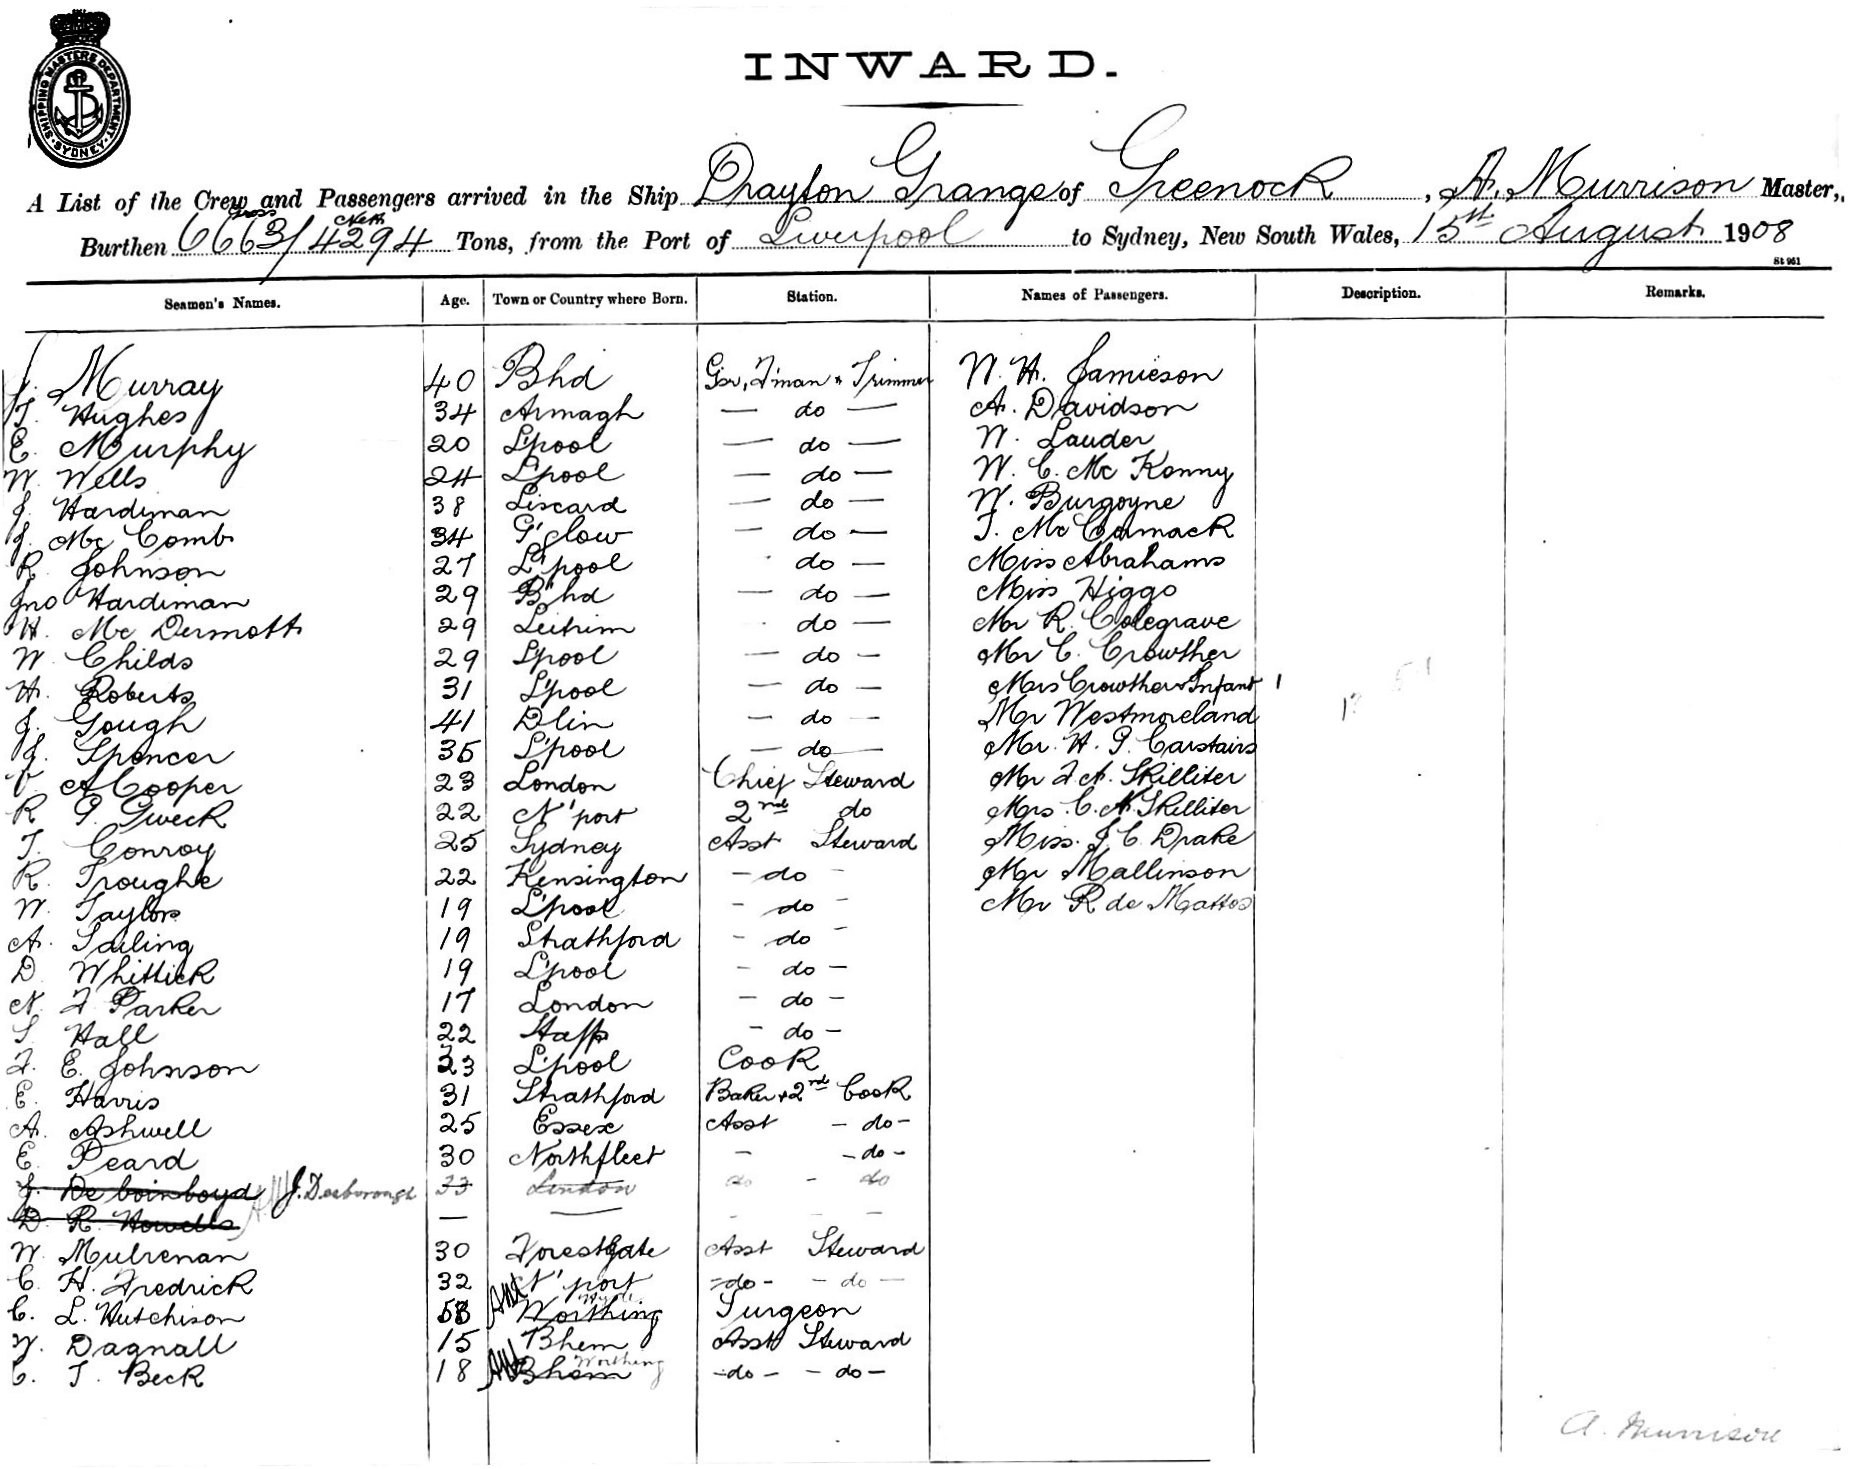 SHIPPING MASTERS DEPARTMENT
SYDNEY
INWARD.
A List of the Crew and Passengers arrived in the Ship Drayton Grange of Greenock, A. Murrison Master,
Burthen 6663/4294 Gross Nett Tons, from the Port of Liverpool to Sydney, New South Wales, 15th August 1908
St 961
Seamen's Names. Age. Town or Country where Born. Station. Names of Passengers. Description. Remarks.
J. Murray 40 Bhd Gsr, F'man & Trimmer W. H. Jamieson
T. Hughes 34 Armagh — do — A. Davidson
E. Murphy 20 L'pool — do — W. Lauder
W. Wells 24 L'pool — do — W. C. Mc Konny
J. Hardiman 38 Liscard — do — W. Burgoyne
J. Mc Comb 34 G'glow — do — T. Mc Cormack
R. Johnson 27 L'pool do — Miss Abrahams
Jno Hardiman 29 B'hd — do — Miss Higgo
H. Mc Dermott 29 Leitrim do — Mr R. Colegrave
W. Childs 29 L'pool — do — Mr C. Crowther
H. Roberts 31 L'pool — do — Mrs Crowther & Infant 1
J. Gough 41 Dlin — do — Mr Westmoreland
J. Spencer 35 L'pool — do — Mr. H. P. Carstairs
A Cooper 23 London Chief Steward Mr F. A. Skilliter
R P. Gweck 22 N'port 2nd do Mrs. C. A. Skilliter
T. Conroy 25 Sydney Asst Steward Miss. J. C. Drake
R. Troughe 22 Kensington - do - Mr Mallinson
W. Taylor 19 L'pool - do - Mr R de Mattos
A. Sailing 19 Strathford - do -
D. Whittick 19 L'pool - do -
N. F Parker 17 London - do -
S. Hall 22 Staffs - do -
F. E. Johnson 23 L'pool Cook
E. Harris 31 Strathford Baker & 2nd Cook
A. Ashwell 25 Essex Asst - do -
E. Peard 30 Northfleet - - do -
J. De boinboyd J. Desborough 33 London do - do
D. R. Howells — — - - -
W. Mulrenan 30 Forest Gate Asst Steward
C. H. Fredrick 32 N'port - do - - do —
C. L. Hutchison 53 Worthing Surgeon
W. Dagnall 15 Bhem Asst Steward
C. T. Beck 18 Bhem Worthing - do - - do -
A. Murrison